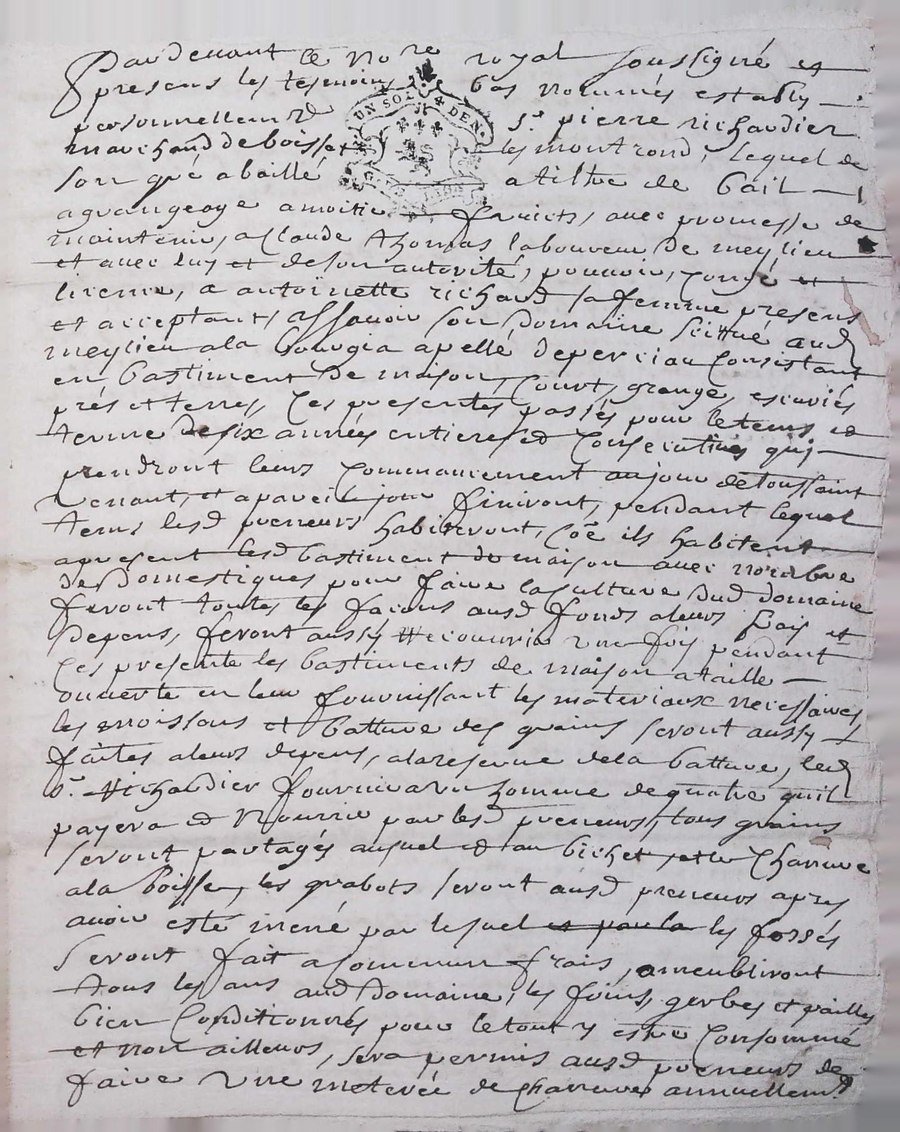 Pardevant le No.re royal soussigné et
presens les tesmoins bas nommés estably
personnellem.t S.r pierre richardier
marchand de boisset les montrond, lequel de
son gré a baillé a tiltre de bail
a grangeage a moitié fruits, avec promesse de
maintenir, a Claude thomas laboureur de meylieu
et avec luy et de son autorité, pouvoir, congé et
licence, a antoinette richard sa femme presens
et acceptant, assavoir son Domaine scittué aud
meylieu a la appellé consistant
en bastiment de maison, Court, grange, escuriés
prés et terres, Ces presentes passés pour le tems et
terme de six années entieres et Consecutives qui
prendront leurs Commancement au jour de toussaint
venant, et a pareil jour finiront, pendant lequel
tems lesd preneurs habiteront, Côe ils habitent
apresent lesd bastiment de maison avec nombre
de Domestiques pour faire la culture dud domaine
feront toutes les facons ausd fonds a leurs frais et
Depens, feront aussy recouvrir une fois pendant
Ces presente les bastiments de maison a taille
ouverte en leur fournissant les materiaux necessaires
les moissons et batture des grains seront aussy
faites a leurs depens, a la reserve de la batture, led
S.r Richardier fournira un homme de quatre quil
payera et Nourrir par lesd preneurs, tous grains
seront partagés au et au bichet, et le Chanvre
a la Poisse, les grabots seront ausd preneurs apres
avoir esté mené par lesuel et par la les fossés
Seront fait a commun frais, ameubliront
tous les ans aud Domaine, les foins, gerbes et pailles
bien Conditionnés pour le tout y estre Consommé
et non ailleurs, sera permis ausd preneurs de
faire Une meterée de Chanvre annuellem.t
UN SOL 4 DEN.